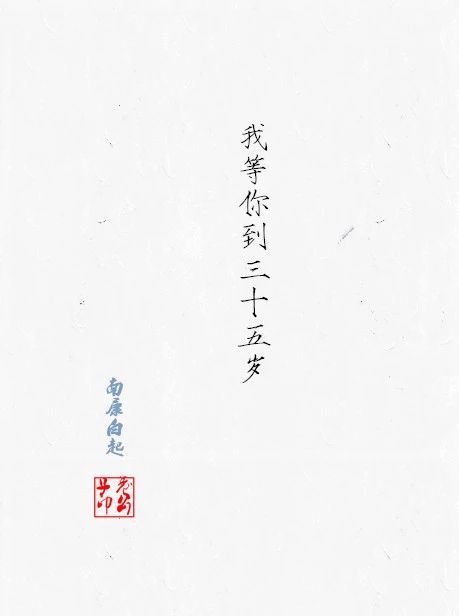 我等你到三十五岁
南康白起